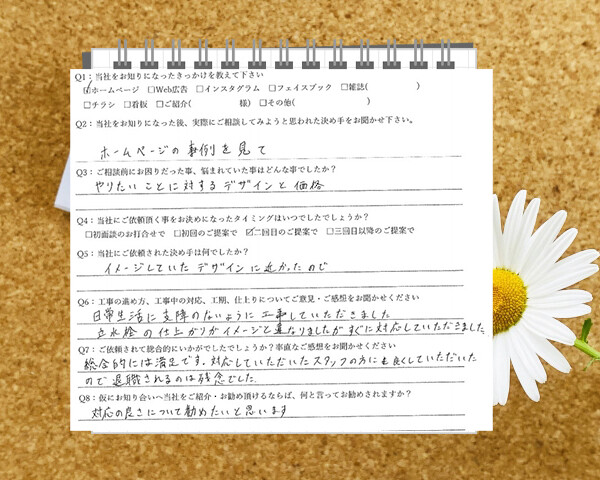 Q1：当社をお知りになったきっかけを教えて下さい
☑ホームページ　□Web広告　□インスタグラム　□フェイスブック　□雑誌(　　　　　)
□チラシ　□看板　□ご紹介(　　　　　様)　□その他(　　　　　　　)
Q2：当社をお知りになった後、実際にご相談してみようと思われた決め手をお聞かせ下さい。
ホームページの事例を見て
Q3：ご相談前にお困りだった事、悩まれていた事はどんな事でしたか？
やりたいことに対するデザインと価格
Q4：当社にご依頼頂く事をお決めになったタイミングはいつでしたでしょうか？
□初面談のお打合せで　□初回のご提案で　☑二回目のご提案で　□三回目以降のご提案で
Q5：当社にご依頼された決め手は何でしたか？
イメージしていたデザインに近かったので
Q6：工事の進め方、工事中の対応、工期、仕上りについてご意見・ご感想をお聞かせください
日常生活に支障のないように工事していただきました
立水栓の仕上がりがイメージと異なりましたがすぐに対応していただきました
Q7：ご依頼されて総合的にいかがでしたでしょうか？率直なご感想をお聞かせください
総合的には満足です。対応していただいたスタッフの方にも良くしていただいた
ので退職されるのは残念でした
Q8：仮にお知り合いへ当社をご紹介・お勧め頂けるならば、何と言ってお勧めされますか？
対応の良さについて勧めたいと思います